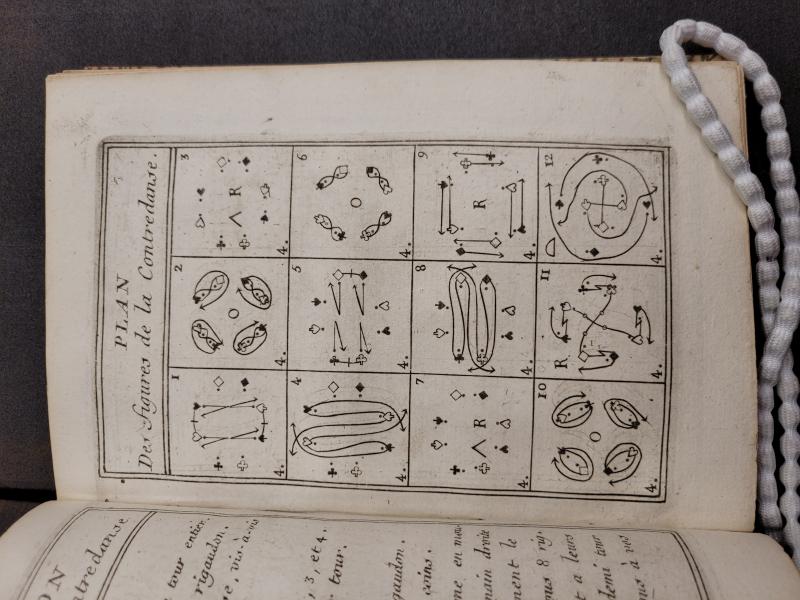 ON
ntredanse
tour entier
rigaudon.
vis-à-vis
3, et 4.
tour.
gaudon.
coins.
main droite
ment le
8 rig.
a leurs
demi tour
PLAN
Des figures de la Contredanse.
1 2 3
R
4. 4. 4.
4 5 6
4. 4. 4.
7 8 9
R R
4. 4. 4.
10 11 12
R
4. 4. 4.